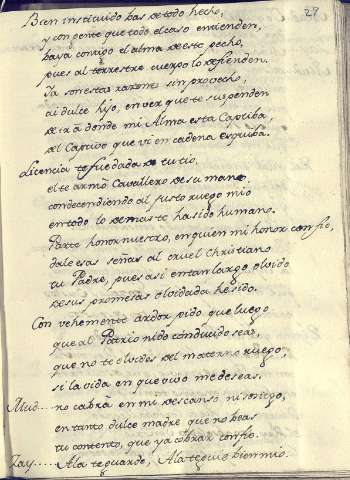 27
Bien instituido has de todo hecho,
y con gente que todo el caso entienden,
haya contigo el alma de este pecho,
pues al terrestre cuerpo lo defienden.
Ya son estas razones sin provecho,
ai dulce hijo, en ver que te suspenden
de irà donde mi Alma està Captiba,
del Captivo que vi en cadena esquiba.
Licencia te fue dada de tu tio,
el te armò Cavallero de su mano,
condecendiendo al justo ruego mio
en todo lo demas te ha sido humano.
Parte honor nuestro, en quien mi honor confio,
dale esas señas al cruel Christiano
tu Padre, pues asi en tan largo olvido
de sus promesas olvidada he sido.
Con vehemente ardor pido que luego
que al Patrio nido conducido seas,
que no te olvides del materno ruego,
si la vida en que vivo me deseas.
Mud.... no cabrà en mi descanso ni sosiego,
en tanto dulce madre que no veas
tu contento, que ya cobrar confio.
Zay.... Alà te guarde, Alà te guie bien mio.